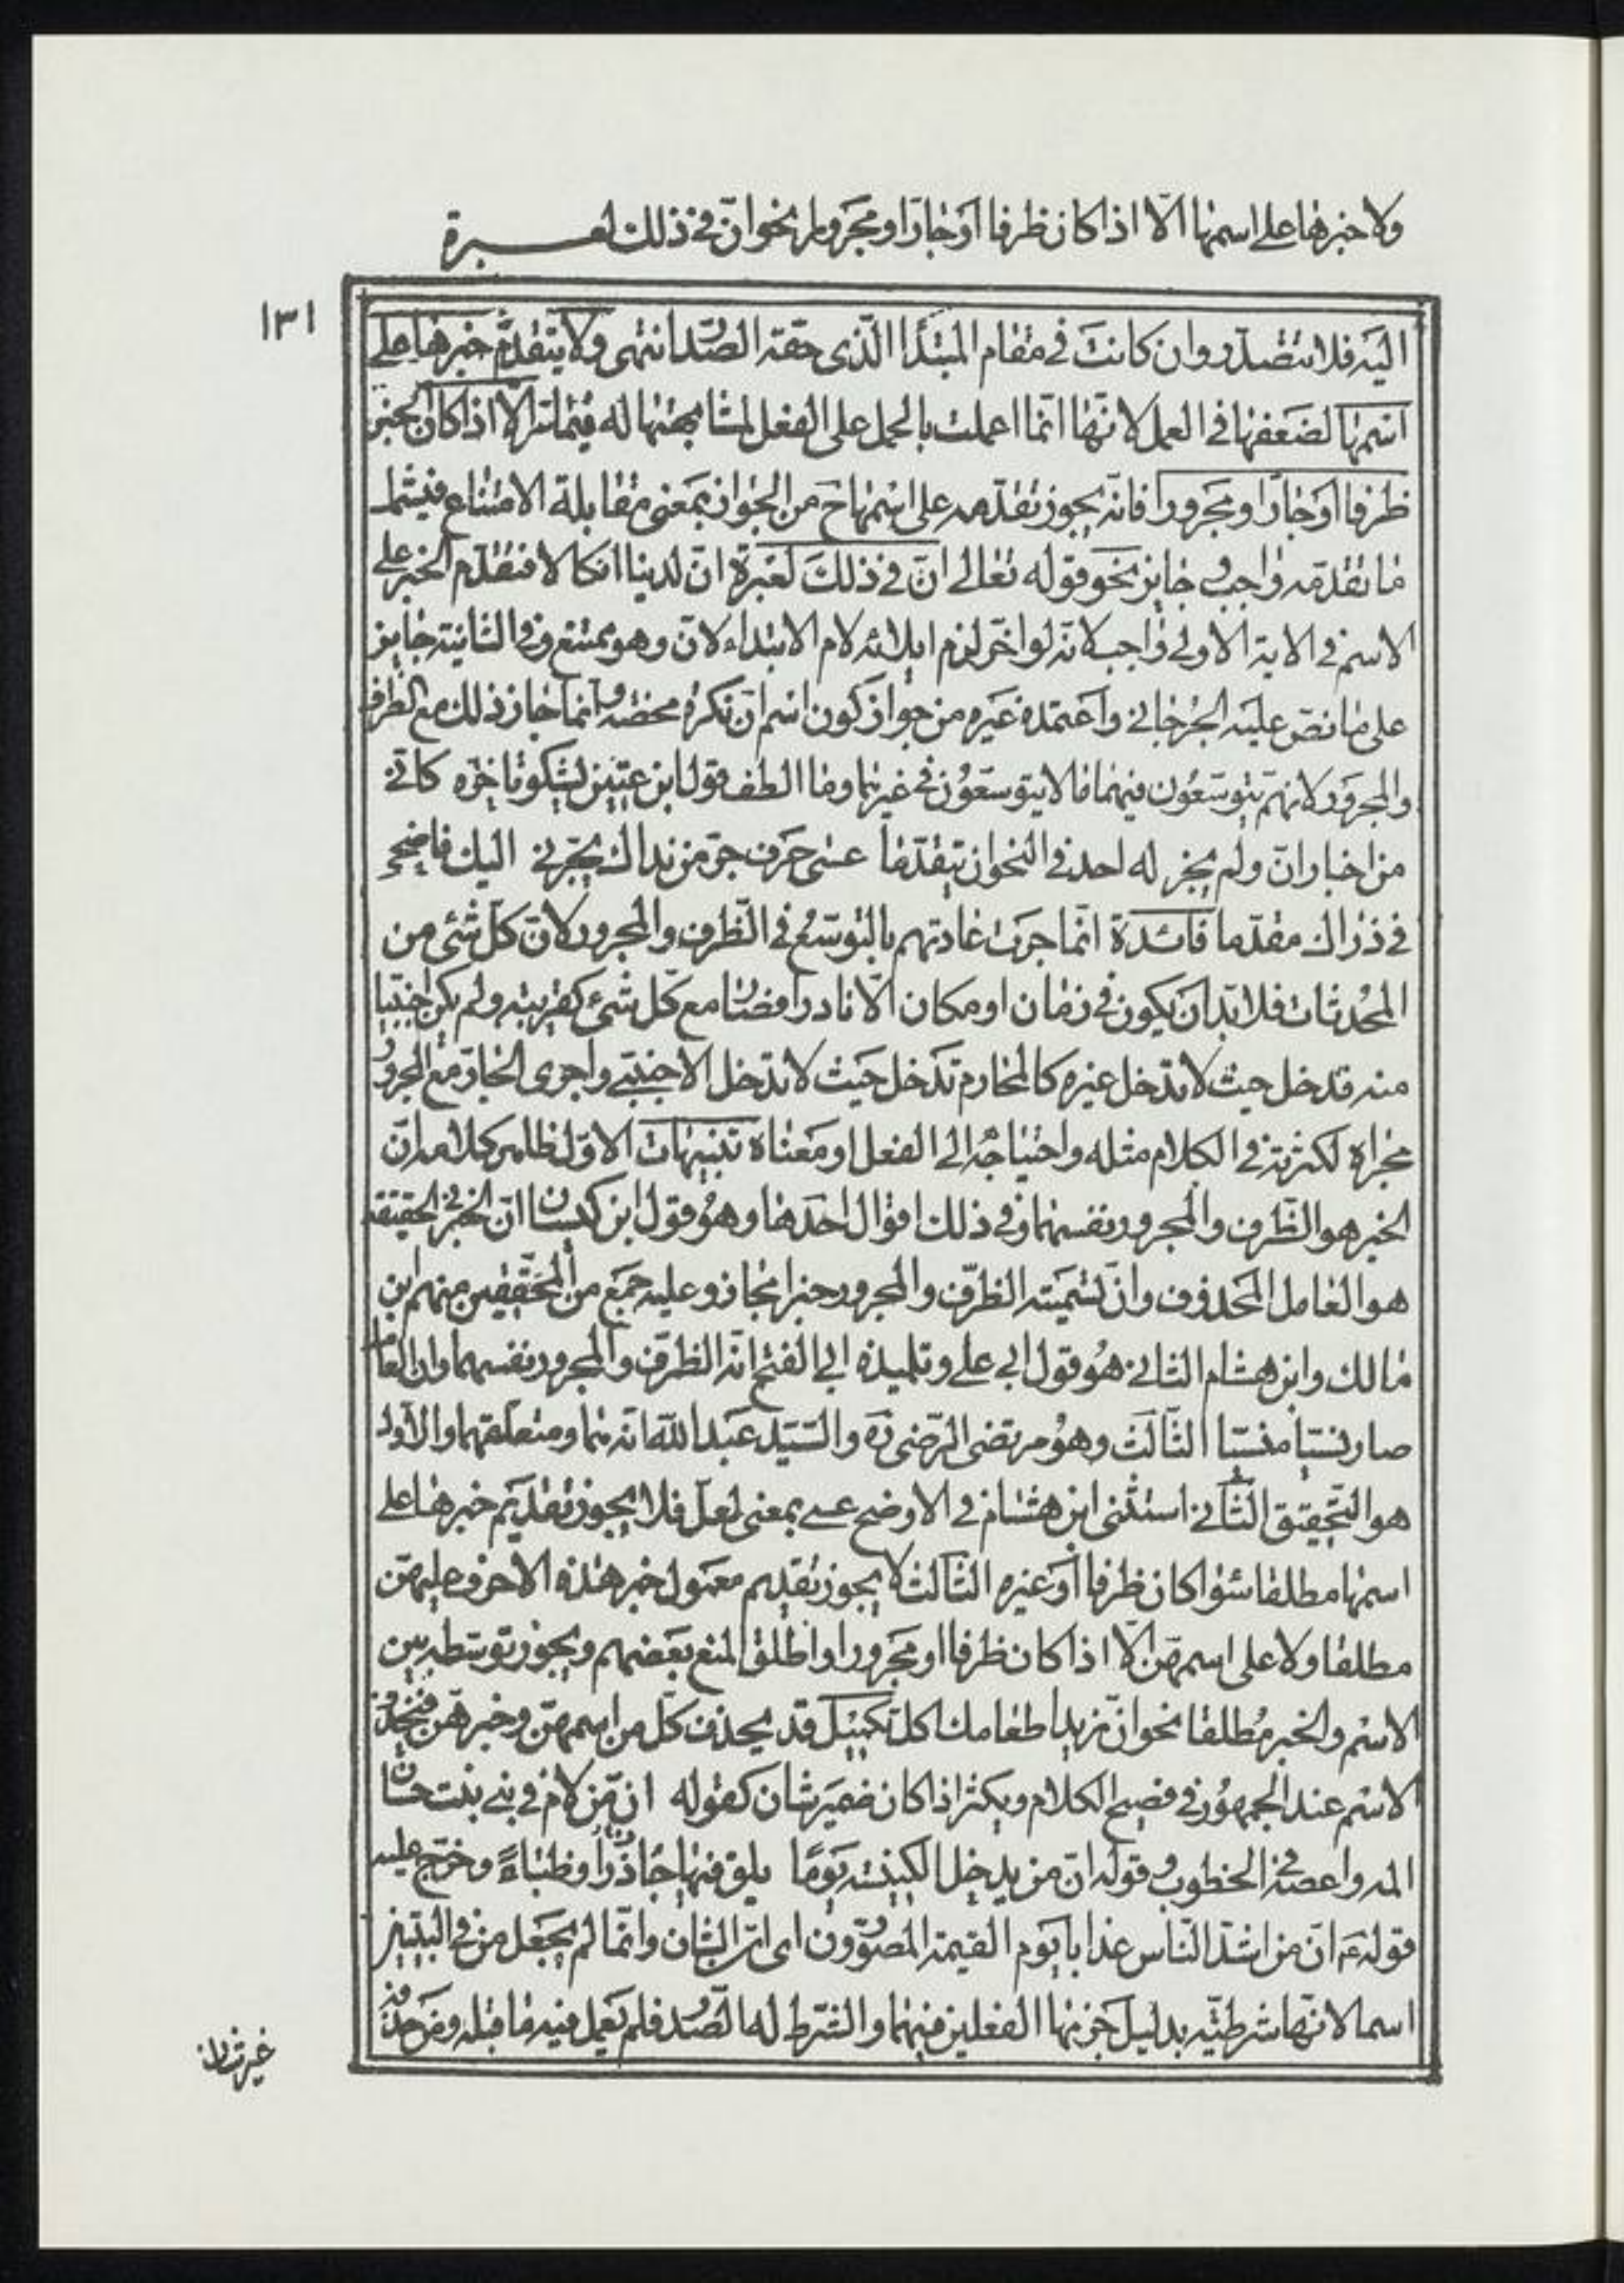 ولا خبرها على اسمها الّا اذا كان ظرفا او جارّا ومجرورا نحو انّ في ذلك لعبرة
١٣١
اليه فلا تتصدّر وان كانت في مقام المبتدأ الّذى حقّه الصّدر انتهى ولا يتقدّم خبرها على
اسمها لضعفها في العمل لانّها انّما اعملت بالحمل على الفعل لمشابهتها له فيما مرّ الّا اذا كان الخبر
ظرفا او جارّا ومجرورا فانّه يجوز تقدّمه على اسمها ح من الجواز بمعنى مقابلة الامتناع فيشمل
ما تقدّمه واجب وجايز نحو قوله تعالى انّ في ذلك لعبرة انّ لدينا انكالا فتقدّم الخبر على
الاسم في الاية الاولى واجب لانّه لو اخّر لزم ايلائه لام الابتداء لانّ وهو ممتنع وفي الثانية جايز
على ما نصّ عليه الجرجاني واعتمده غيره من جواز كون اسم انّ نكرة محضة وانّما جاز ذلك مع الظرف
والمجرور لانهم يتوسّعون فيهما ما لا يتوسّعون في غيرهما وما الطف قول ابن عنين يشكو تاخّره كانّي
من اخبار انّ ولم يجز له احد في النحو ان يتقدّما عسى حرف جرّ من نداك يجرّني اليك فاضحى
في ذراك مقدّما فائدة انّما جرت عادتهم بالتوسّع في الظرف والمجرور لانّ كلّ شئ من
المحدثات فلا بدّ ان يكون في زمان او مكان الّا نادرا فصارا مع كلّ شئ كقريبه ولم يكن اجنبيّا
منه فدخل حيث لا يدخل غيره كالمحارم تدخل حيث لا يدخل الاجنبي واجرى الجارّ مع المجرور
مجراه لكثرته في الكلام مثله واحتياجه الى الفعل او معناه تنبيهات الاوّل ظاهر كلامه انّ
الخبر هو الظّرف والمجرور نفسهما وفي ذلك اقوال احدها وهو قول ابن كيسان انّ الخبر في الحقيقة
هو العامل المحذوف وانّ تسمية الظرف والمجرور خبرا مجاز وعليه جمع من المحقّقين منهم ابن
مالك وابن هشام الثاني هو قول ابي علي وتلميذه ابي الفتح انّه الظرف والمجرور نفسهما وان العامل
صار نسيا منسيّا الثّالث وهو مرتضى الرّضى ره والسّيّد عبد الله انّه هما ومتعلّقهما والاوّل
هو التّحقيق الثّاني استثنى ابن هشام في الاوضح عسى بمعنى لعلّ فلا يجوز تقديم خبرها على
اسمها مطلقا سواء كان ظرفا او غيره الثالث لا يجوز تقديم معمول خبر هذه الاحرف عليهنّ
مطلقا ولا على اسمهنّ الّا اذا كان ظرفا او مجرورا واطلق المنع بعضهم ويجوز توسّطه بين
الاسم والخبر مطلقا نحو انّ زيدا طعامك اكل تكميل قد يحذف كلّ من اسمهنّ وخبرهنّ فيحذف
الاسم عند الجمهور في فصيح الكلام ويكثر اذا كان ضمير شان كقوله انّ من لام في بني بنت حسّان
المه واعصه في الخطوب وقوله انّ من يدخل الكنيسة يوما يلق فيها جاذرا وظباءً وخرّج عليه
قوله ع انّ من اشدّ الناس عذابا يوم القيمة المصوّرون اى انّ الشان وانّما لم يجعل من في البيتين
اسما لانّها شرطيّة بدليل جزمها الفعلين فيهما والشرط له الصّدر فلم يعمل فيه ما قبله ومن حذف
غير شان